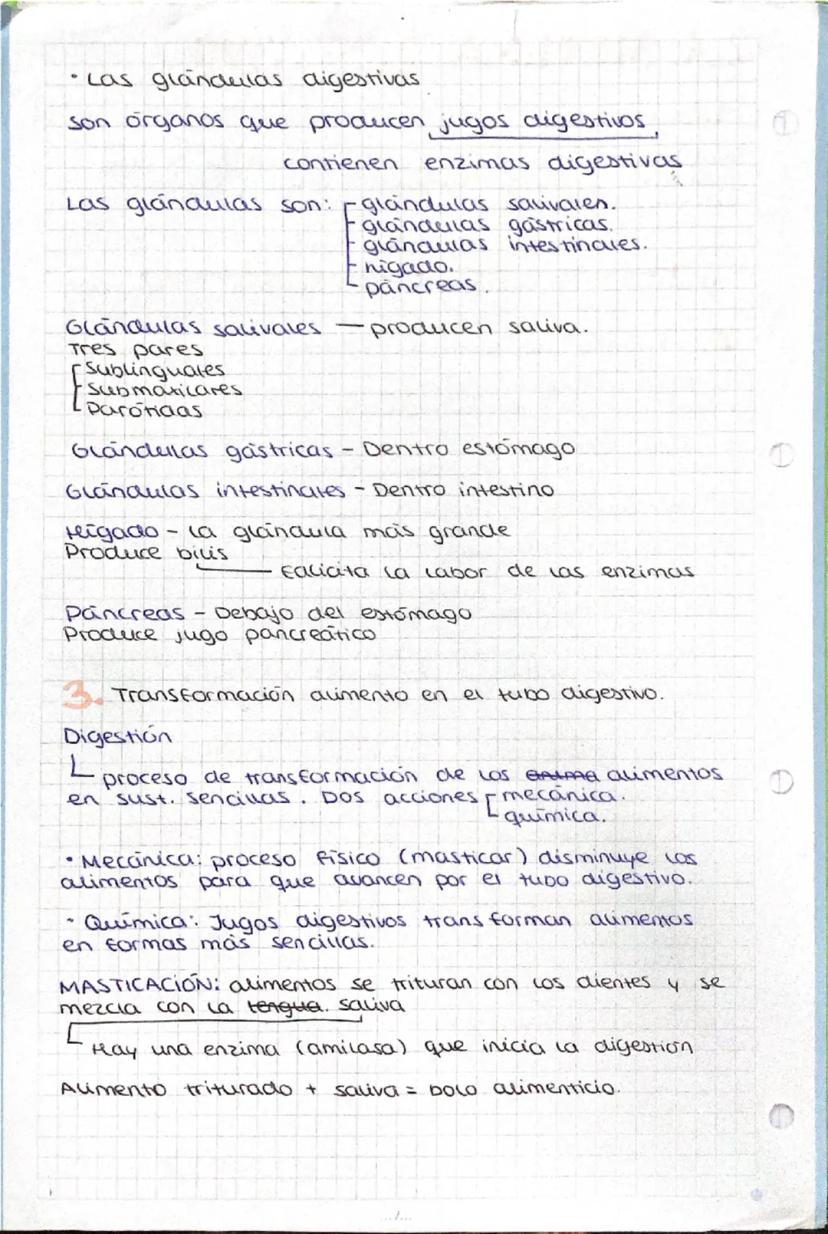 • Las glándulas digestivas
son órganos que producen jugos digestivos
contienen enzimas digestivas
Las glándulas son: glándulas salivales.
glándulas gástricas.
glándulas intestinales.
hígado.
páncreas.
Glándulas salivales — producen saliva.
Tres pares
Sublinguales
Submaxilares
Parótidas
Glándulas gástricas - Dentro estómago
Glándulas intestinales - Dentro intestino
Hígado - La glándula más grande
Produce bilis
Falicita la labor de las enzimas
Páncreas - Debajo del estómago
Produce jugo pancreático
3. Transformación alimento en el tubo digestivo.
Digestión
proceso de transformación de los alimentos
en sust. sencillas. Dos acciones mecánica.
química.
• Mecánica: proceso físico (masticar) disminuye los
alimentos para que avancen por el tubo digestivo.
• Química: Jugos digestivos transforman alimentos
en formas más sencillas.
MASTICACIÓN: alimentos se trituran con los dientes y se
mezcla con la lengua. saliva
Hay una enzima (amilasa) que inicia la digestión
Alimento triturado + saliva = bolo alimenticio.